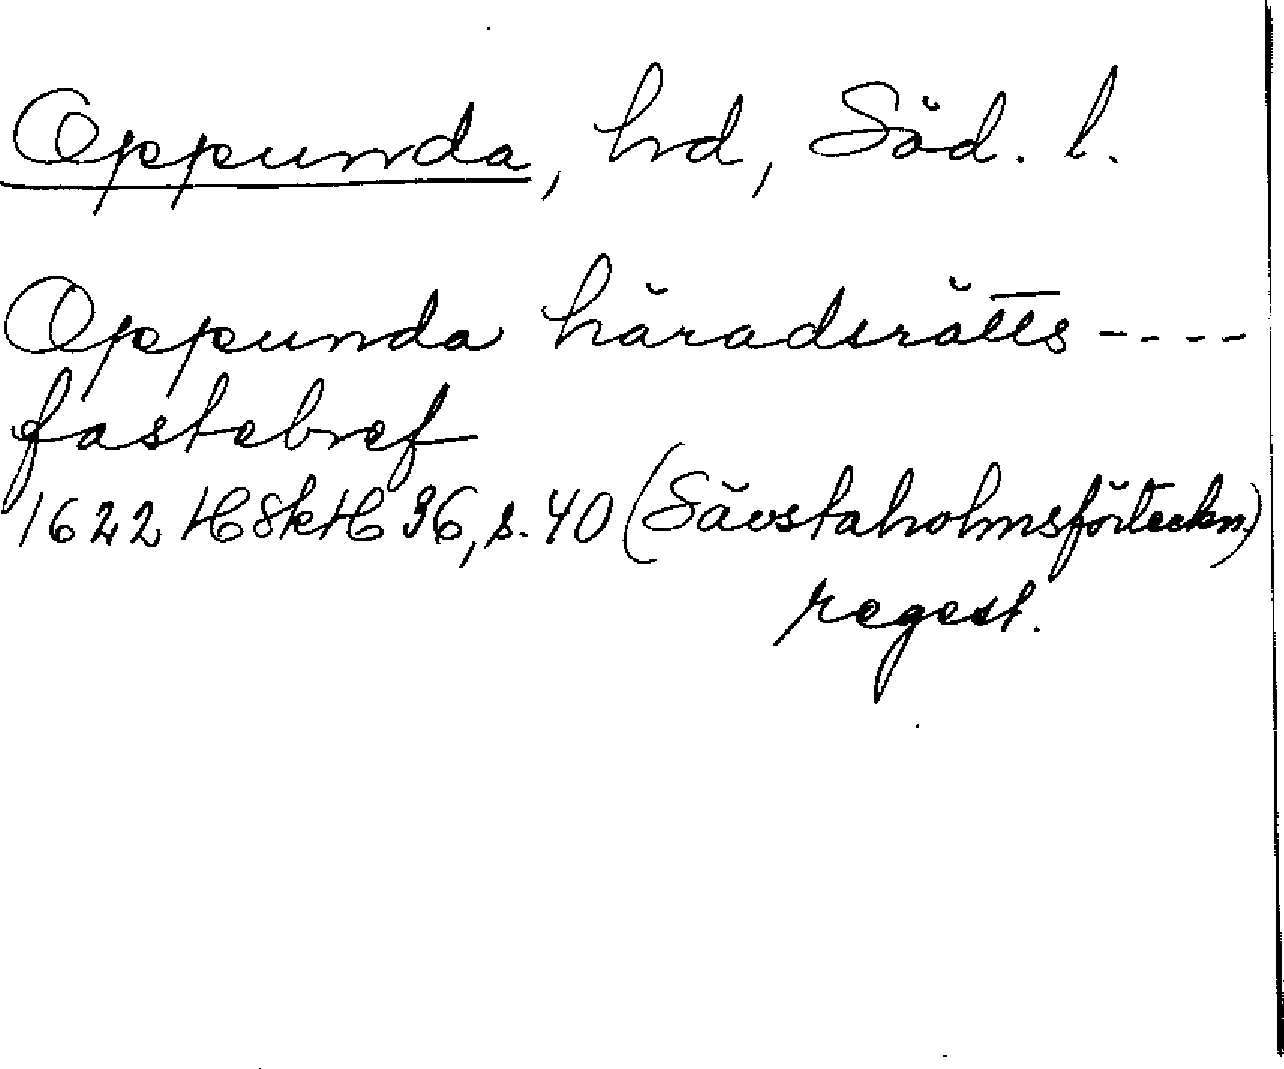 Oppunda, hd, Söd. l.
Oppunda häradsrätts ----
fastebref
1622 HSkH 36, s. 40 (Sävstaholmsförteckn.)
regest.